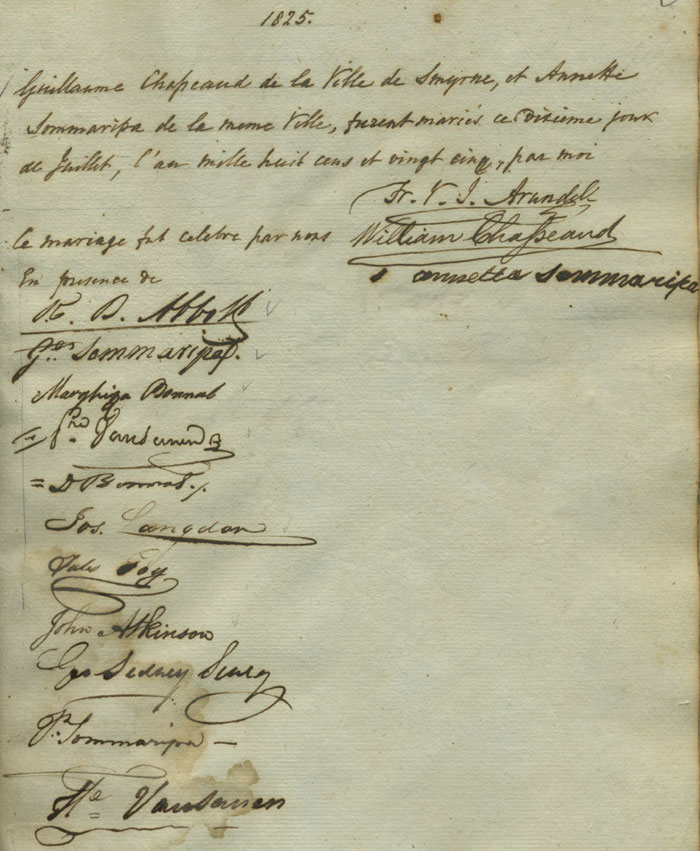 1825.
Guillaume Chapeaud de la Ville de Smyrne, et Annette
Sommaripa de la meme Ville, furent mariés ce dixieme jour
de Juillet, l'an mille huit cens et vingt cinq, par moi
Fr. V. J. Arundell
Ce mariage fut celebre par nous William Chasseaud
annetta Sommaripa
En presence de
R. B. Abbott
Sommaripa.
Marghiga Bonnal
D Bonnal
Jos. Langdon
Jules Foy
John Atkinson
Geo Sedney
P. Sommaripa
Vanlennen